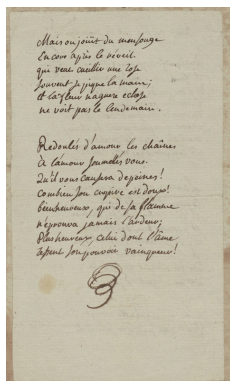 Mais on jouit du mensonge
Encore après le réveil.
qui veut cueillir une rose
souvent se pique la main;
et la fleur naguere eclose
ne voit pas le lendemain.
Redoutés d'amour les chaînes
à l'amour soumettés vous.
qu'il vous causera de peines!
combien son empire est doux!
bienheureux, qui de sa flamme
n'éprouva jamais l'ardeur;
Plus heureux, celui dont l'âme
a senti son pouvoir vainqueur!